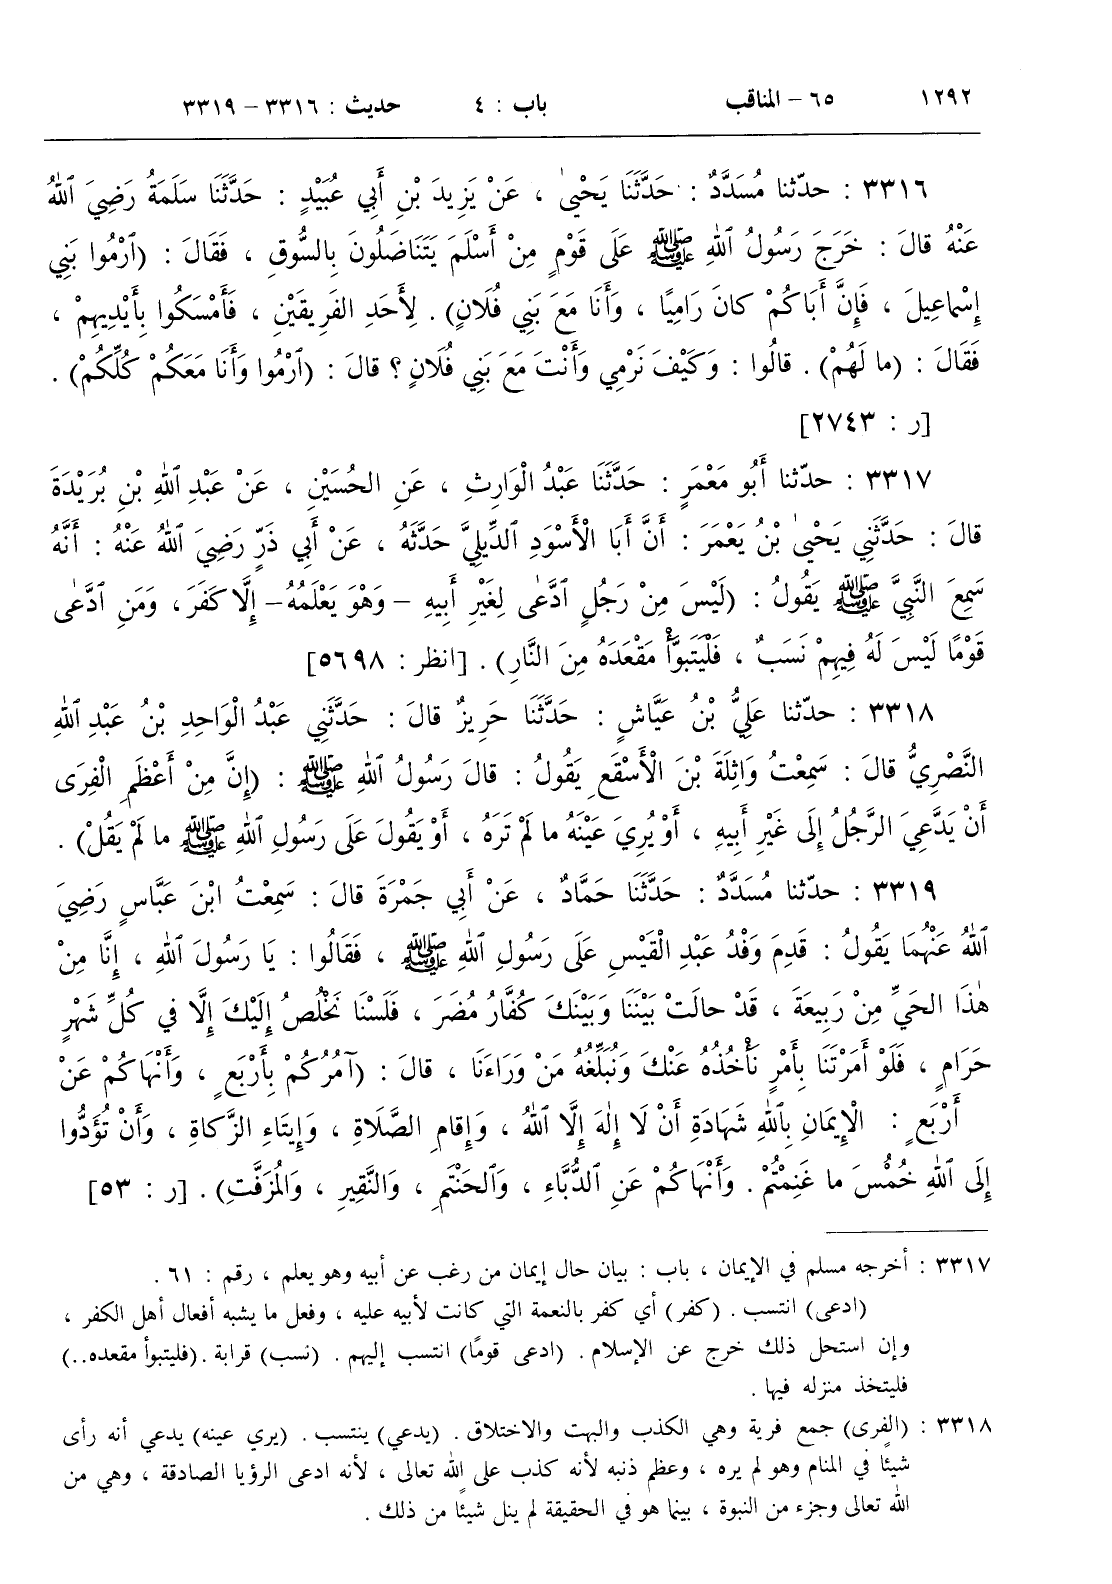 ١٢٩٢ ٦٥ – المناقب باب : ٤ حديث : ٣٣١٦ – ٣٣١٩
٣٣١٦ : حدّثنا مُسَدَّدٌ : حَدَّثَنَا يَحْيىٰ ، عَنْ يَزِيدَ بْنِ أَبِي عُبَيْدٍ : حَدَّثَنَا سَلَمَةُ رَضِيَ ٱللهُ
عَنْهُ قالَ : خَرَجَ رَسُولُ ٱللهِ ﷺ عَلَى قَوْمٍ مِنْ أَسْلَمَ يَتَنَاضَلُونَ بِالسُّوقِ ، فَقَالَ : (ٱرْمُوا بَنِي
إِسْماعِيلَ ، فَإِنَّ أَبَاكُمْ كانَ رَامِيًا ، وَأَنَا مَعَ بَنِي فُلَانٍ) . لِأَحَدِ الفَرِيقَيْنِ ، فَأَمْسَكُوا بِأَيْدِيهِمْ ،
فَقَالَ : (ما لَهُمْ) . قالُوا : وَكَيْفَ نَرْمِي وَأَنْتَ مَعَ بَنِي فُلَانٍ ؟ قالَ : (ٱرْمُوا وَأَنَا مَعَكُمْ كُلِّكُمْ) .
[ر : ٢٧٤٣]
٣٣١٧ : حدّثنا أَبُو مَعْمَرٍ : حَدَّثَنَا عَبْدُ الْوَارِثِ ، عَنِ الحُسَيْنِ ، عَنْ عَبْدِ ٱللهِ بْنِ بُرَيْدَةَ
قالَ : حَدَّثَنِي يَحْيىٰ بْنُ يَعْمَرَ : أَنَّ أَبَا الْأَسْوَدِ ٱلدِّيلِيَّ حَدَّثَهُ ، عَنْ أَبِي ذَرٍّ رَضِيَ ٱللهُ عَنْهُ : أَنَّهُ
سَمِعَ النَّبِيَّ ﷺ يَقُولُ : (لَيْسَ مِنْ رَجُلٍ ٱدَّعٰى لِغَيْرِ أَبِيهِ – وَهْوَ يَعْلَمُهُ – إِلَّا كَفَرَ ، وَمَنِ ٱدَّعٰى
قَوْمًا لَيْسَ لَهُ فِيهِمْ نَسَبٌ ، فَلْيَتَبَوَّأْ مَقْعَدَهُ مِنَ النَّارِ) . [انظر : ٥٦٩٨]
٣٣١٨ : حدّثنا عَلِيُّ بْنُ عَيَّاشٍ : حَدَّثَنَا حَرِيزٌ قالَ : حَدَّثَنِي عَبْدُ الْوَاحِدِ بْنُ عَبْدِ ٱللهِ
النَّصْرِيُّ قالَ : سَمِعْتُ وَاثِلَةَ بْنَ الْأَسْقَعِ يَقُولُ : قالَ رَسُولُ ٱللهِ ﷺ : (إِنَّ مِنْ أَعْظَمِ الْفِرَى
أَنْ يَدَّعِيَ الرَّجُلُ إِلَى غَيْرِ أَبِيهِ ، أَوْ يُرِيَ عَيْنَهُ ما لَمْ تَرَهُ ، أَوْ يَقُولَ عَلَى رَسُولِ ٱللهِ ﷺ ما لَمْ يَقُلْ) .
٣٣١٩ : حدّثنا مُسَدَّدٌ : حَدَّثَنَا حَمَّادٌ ، عَنْ أَبِي جَمْرَةَ قالَ : سَمِعْتُ ابْنَ عَبَّاسٍ رَضِيَ
ٱللهُ عَنْهُمَا يَقُولُ : قَدِمَ وَفْدُ عَبْدِ الْقَيْسِ عَلَى رَسُولِ ٱللهِ ﷺ ، فَقَالُوا : يَا رَسُولَ ٱللهِ ، إِنَّا مِنْ
هٰذَا الحَيِّ مِنْ رَبِيعَةَ ، قَدْ حالَتْ بَيْنَنَا وَبَيْنَكَ كُفَّارُ مُضَرَ ، فَلَسْنَا نَخْلُصُ إِلَيْكَ إِلَّا في كُلِّ شَهْرٍ
حَرَامٍ ، فَلَوْ أَمَرْتَنَا بِأَمْرٍ نَأْخُذُهُ عَنْكَ وَنُبَلِّغُهُ مَنْ وَرَاءَنَا ، قالَ : (آمُرُكُمْ بِأَرْبَعٍ ، وَأَنْهَاكُمْ عَنْ
أَرْبَعٍ : الْإِيمَانِ بِٱللهِ شَهَادَةِ أَنْ لَا إِلٰهَ إِلَّا ٱللهُ ، وَإِقامِ الصَّلَاةِ ، وَإِيتَاءِ الزَّكاةِ ، وَأَنْ تُؤَدُّوا
إِلَى ٱللهِ خُمُسَ ما غَنِمْتُمْ . وَأَنْهَاكُمْ عَنِ ٱلدُّبَّاءِ ، وَٱلحَنْتَمِ ، وَالنَّقِيرِ ، وَالمُزَفَّتِ) . [ر : ٥٣]
٣٣١٧ : أخرجه مسلم في الإيمان ، باب : بيان حال إيمان من رغب عن أبيه وهو يعلم ، رقم : ٦١ .
(ادعى) انتسب . (كفر) أي كفر بالنعمة التي كانت لأبيه عليه ، وفعل ما يشبه أفعال أهل الكفر ،
وإن استحل ذلك خرج عن الإسلام . (ادعى قومًا) انتسب إليهم . (نسب) قرابة . (فليتبوأ مقعده..)
فليتخذ منزله فيها .
٣٣١٨ : (الفِرى) جمع فرية وهي الكذب والبهت والاختلاق . (يدعي) ينتسب . (يري عينه) يدعي أنه رأى
شيئًا في المنام وهو لم يره ، وعظم ذنبه لأنه كذب على الله تعالى ، لأنه ادعى الرؤيا الصادقة ، وهي من
الله تعالى وجزء من النبوة ، بينما هو في الحقيقة لم ينل شيئًا من ذلك .